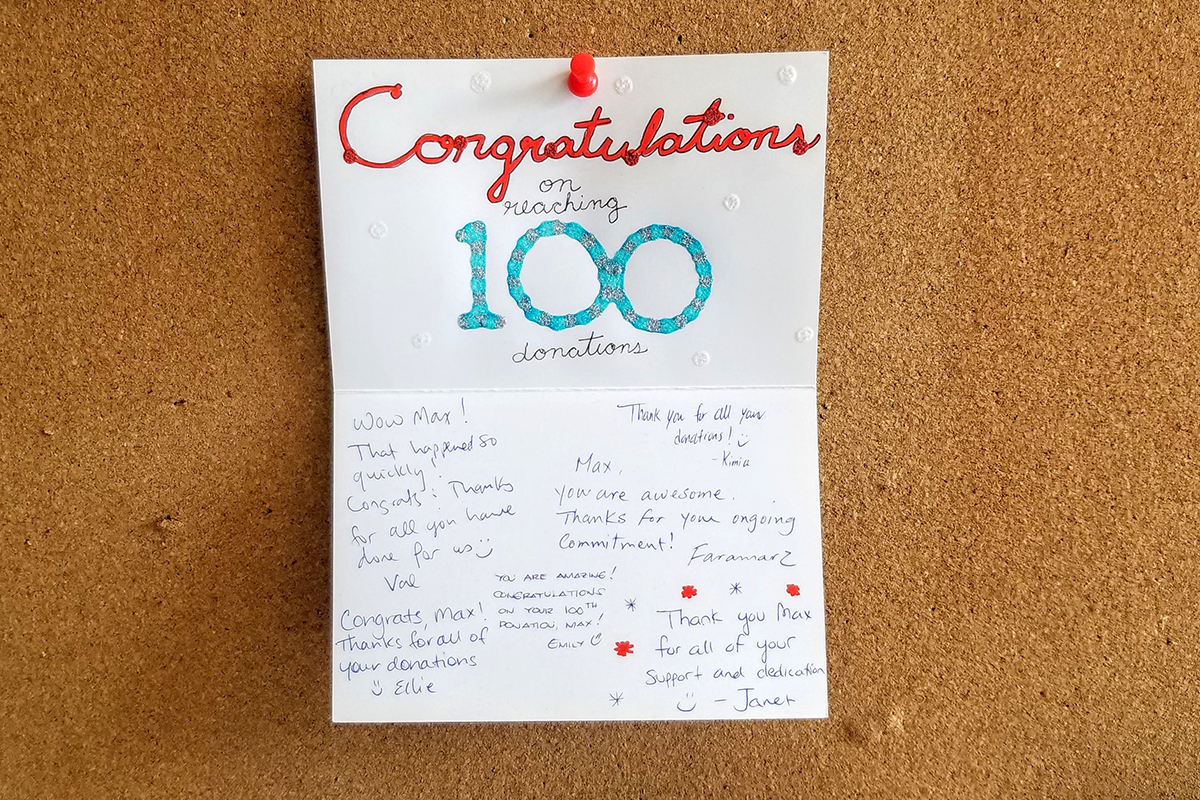 Congratulations
on
reaching
100
donations
Wow Max!
That happened so
quickly!
Congrats! Thanks
for all you have
done for us
Val
Thank you for all your
donations!
- Kimia
Max,
you are awesome.
Thanks for your ongoing
Commitment!
Faramarz
Congrats, Max!
Thanks for all of
your donations
Ellie
YOU ARE AMAZING!
CONGRATULATIONS
ON YOUR 100TH
DONATION, MAX!
EMILY
Thank you Max
for all of your
support and dedication
- Janet